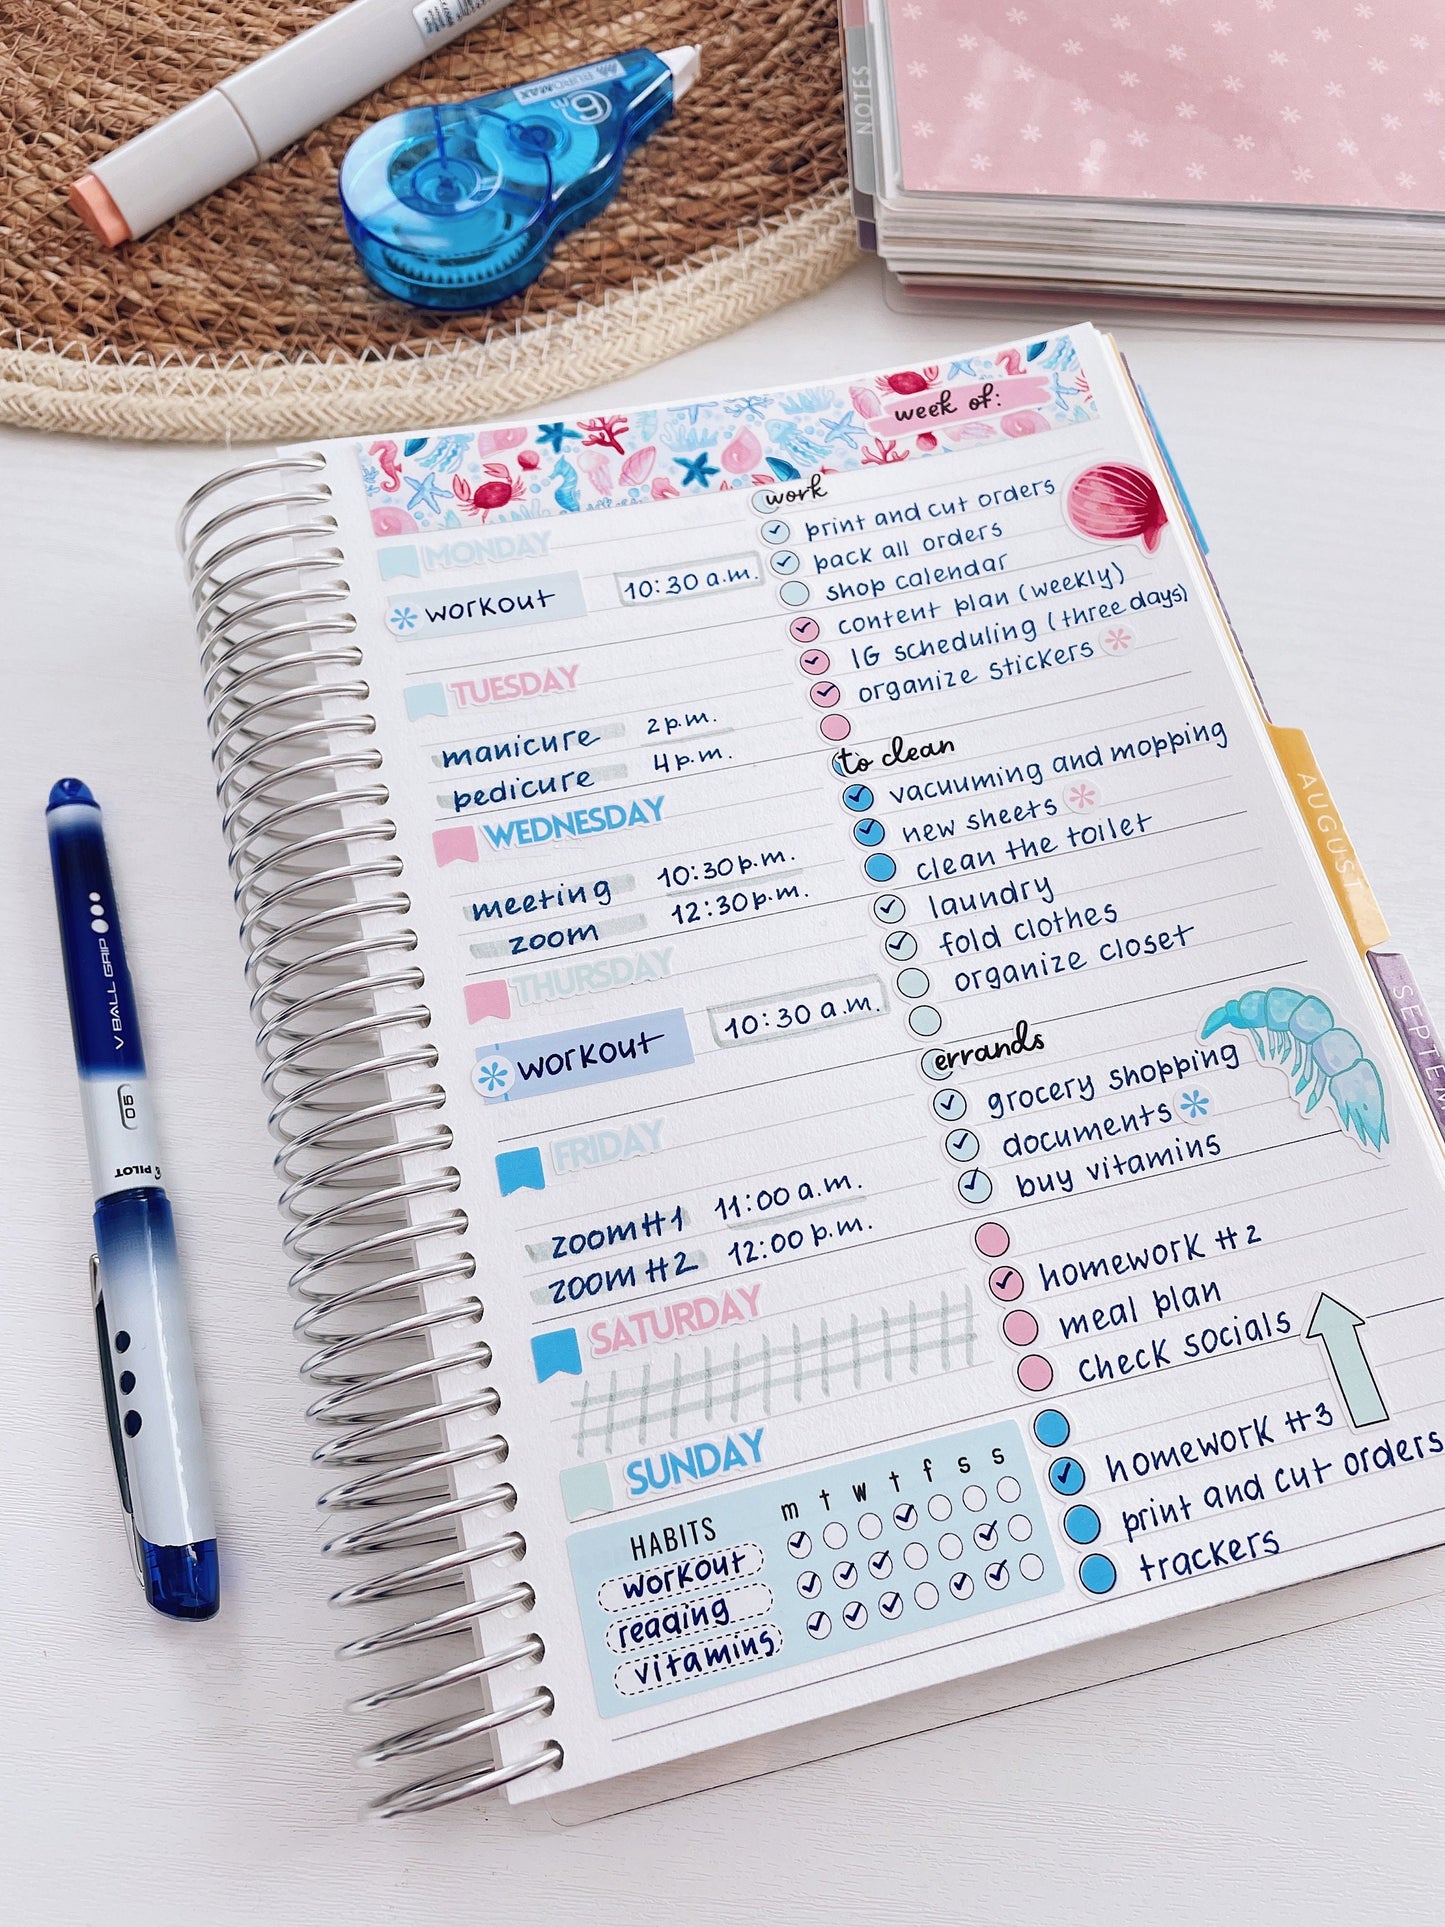 PUROMAX
6m
NOTES
week of:
MONDAY
workout 10:30 a.m.
TUESDAY
manicure 2 p.m.
pedicure 4 p.m.
WEDNESDAY
meeting 10:30 p.m.
zoom 12:30 p.m.
THURSDAY
workout 10:30 a.m.
FRIDAY
zoom #1 11:00 a.m.
zoom #2 12:00 p.m.
SATURDAY
SUNDAY
HABITS m t w t f s s
workout
reading
vitamins
work
print and cut orders
pack all orders
shop calendar
content plan (weekly)
IG scheduling (three days)
organize stickers
to clean
vacuuming and mopping
new sheets
clean the toilet
laundry
fold clothes
organize closet
errands
grocery shopping
documents
buy vitamins
homework #2
meal plan
check socials
homework #3
print and cut orders
trackers
AUGUST
SEPTEM
V BALL GRIP
05
PILOT